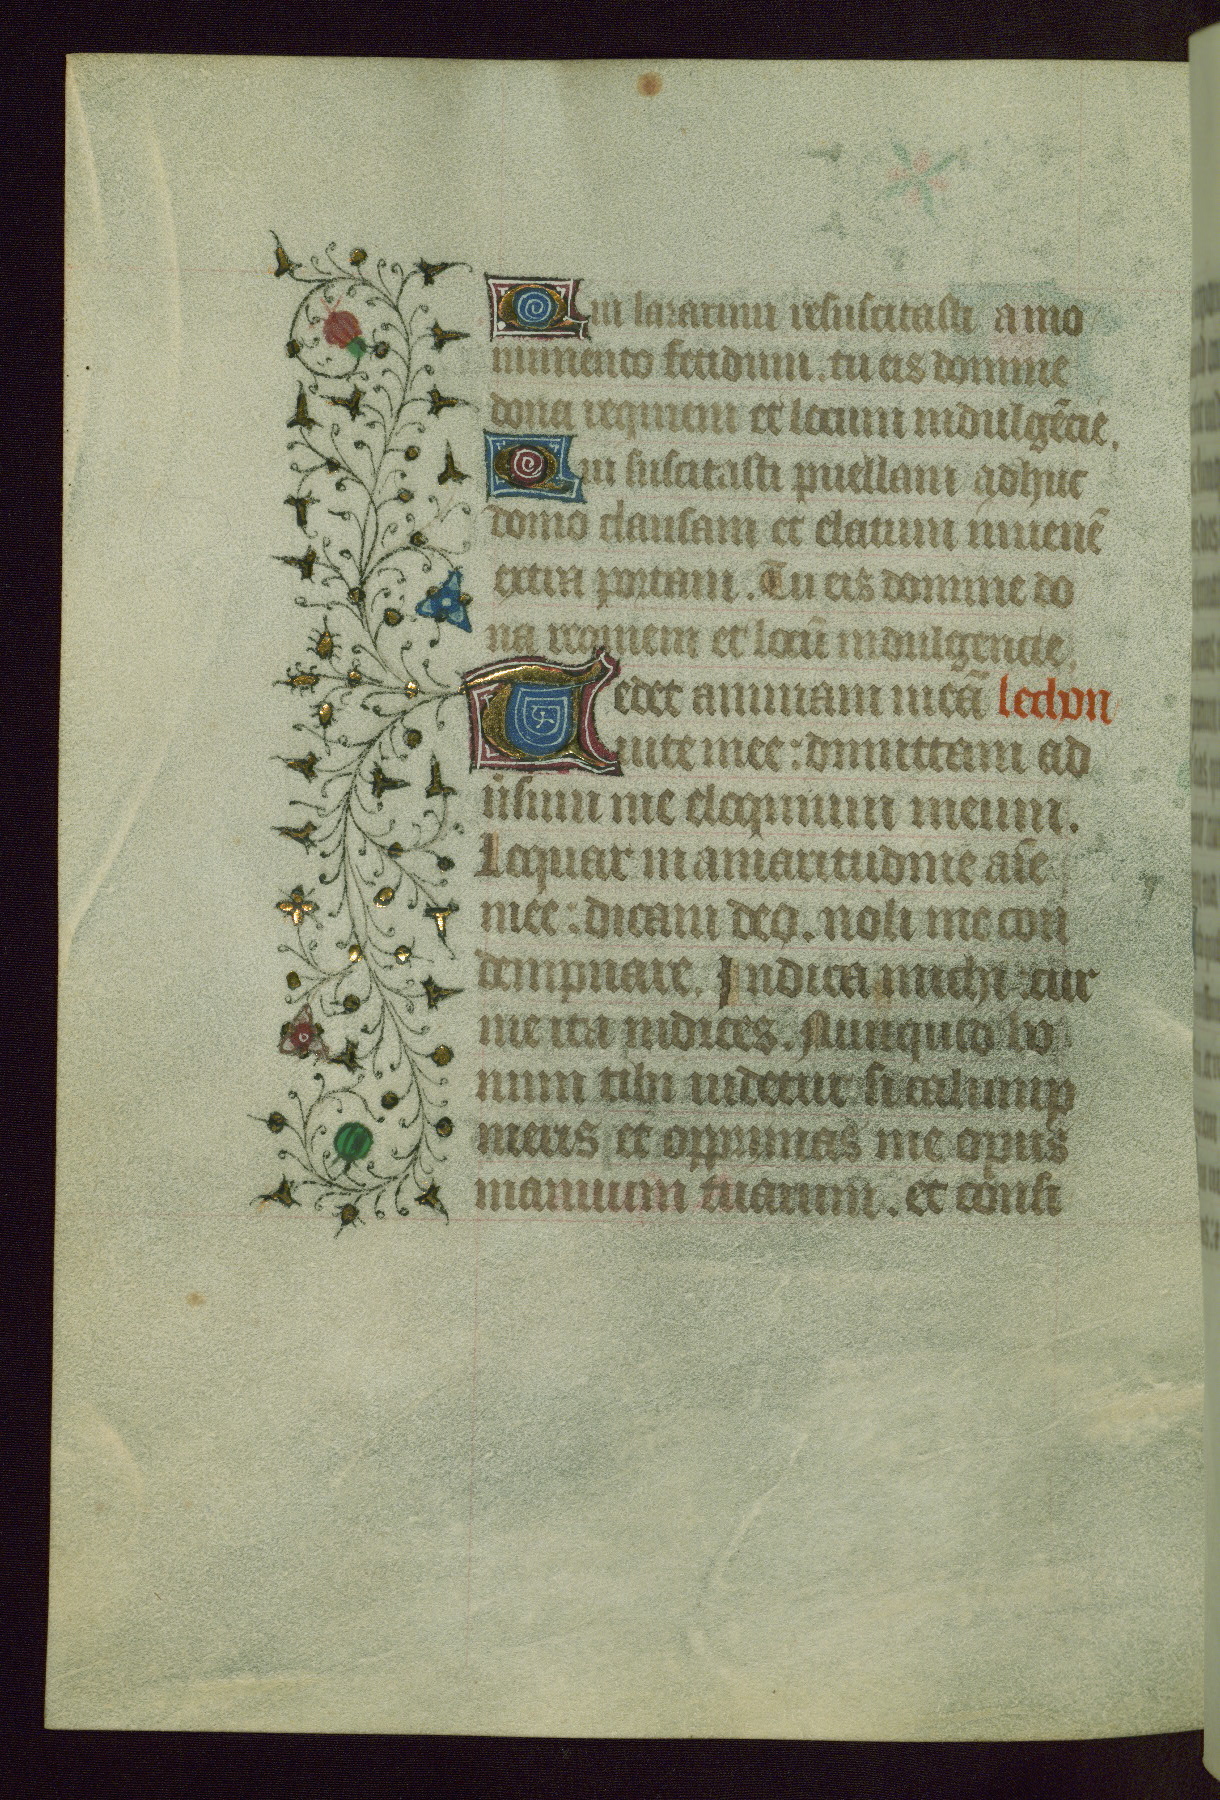 Qui lazarum resuscitasti a mo
numento fetidum. tu eis domine
dona requiem et locum indulgẽcie.
Qui suscitasti puellam adhuc
domo clausam et elatum iuuenẽ
extra portam. Tu eis domine do
na requiem et locũ indulgencie.
Tedet animam meã lectyon
uite mee: dimittam ad
uersum me eloquium meum.
Loquar in amaritudine aĩe
mee: dicam deo. noli me con
dempnare. Indica michi: cur
me ita iudices. Nunquid bo
num tibi uidetur si calump
nieris et opprimas me opus
manuum tuarum. et consi